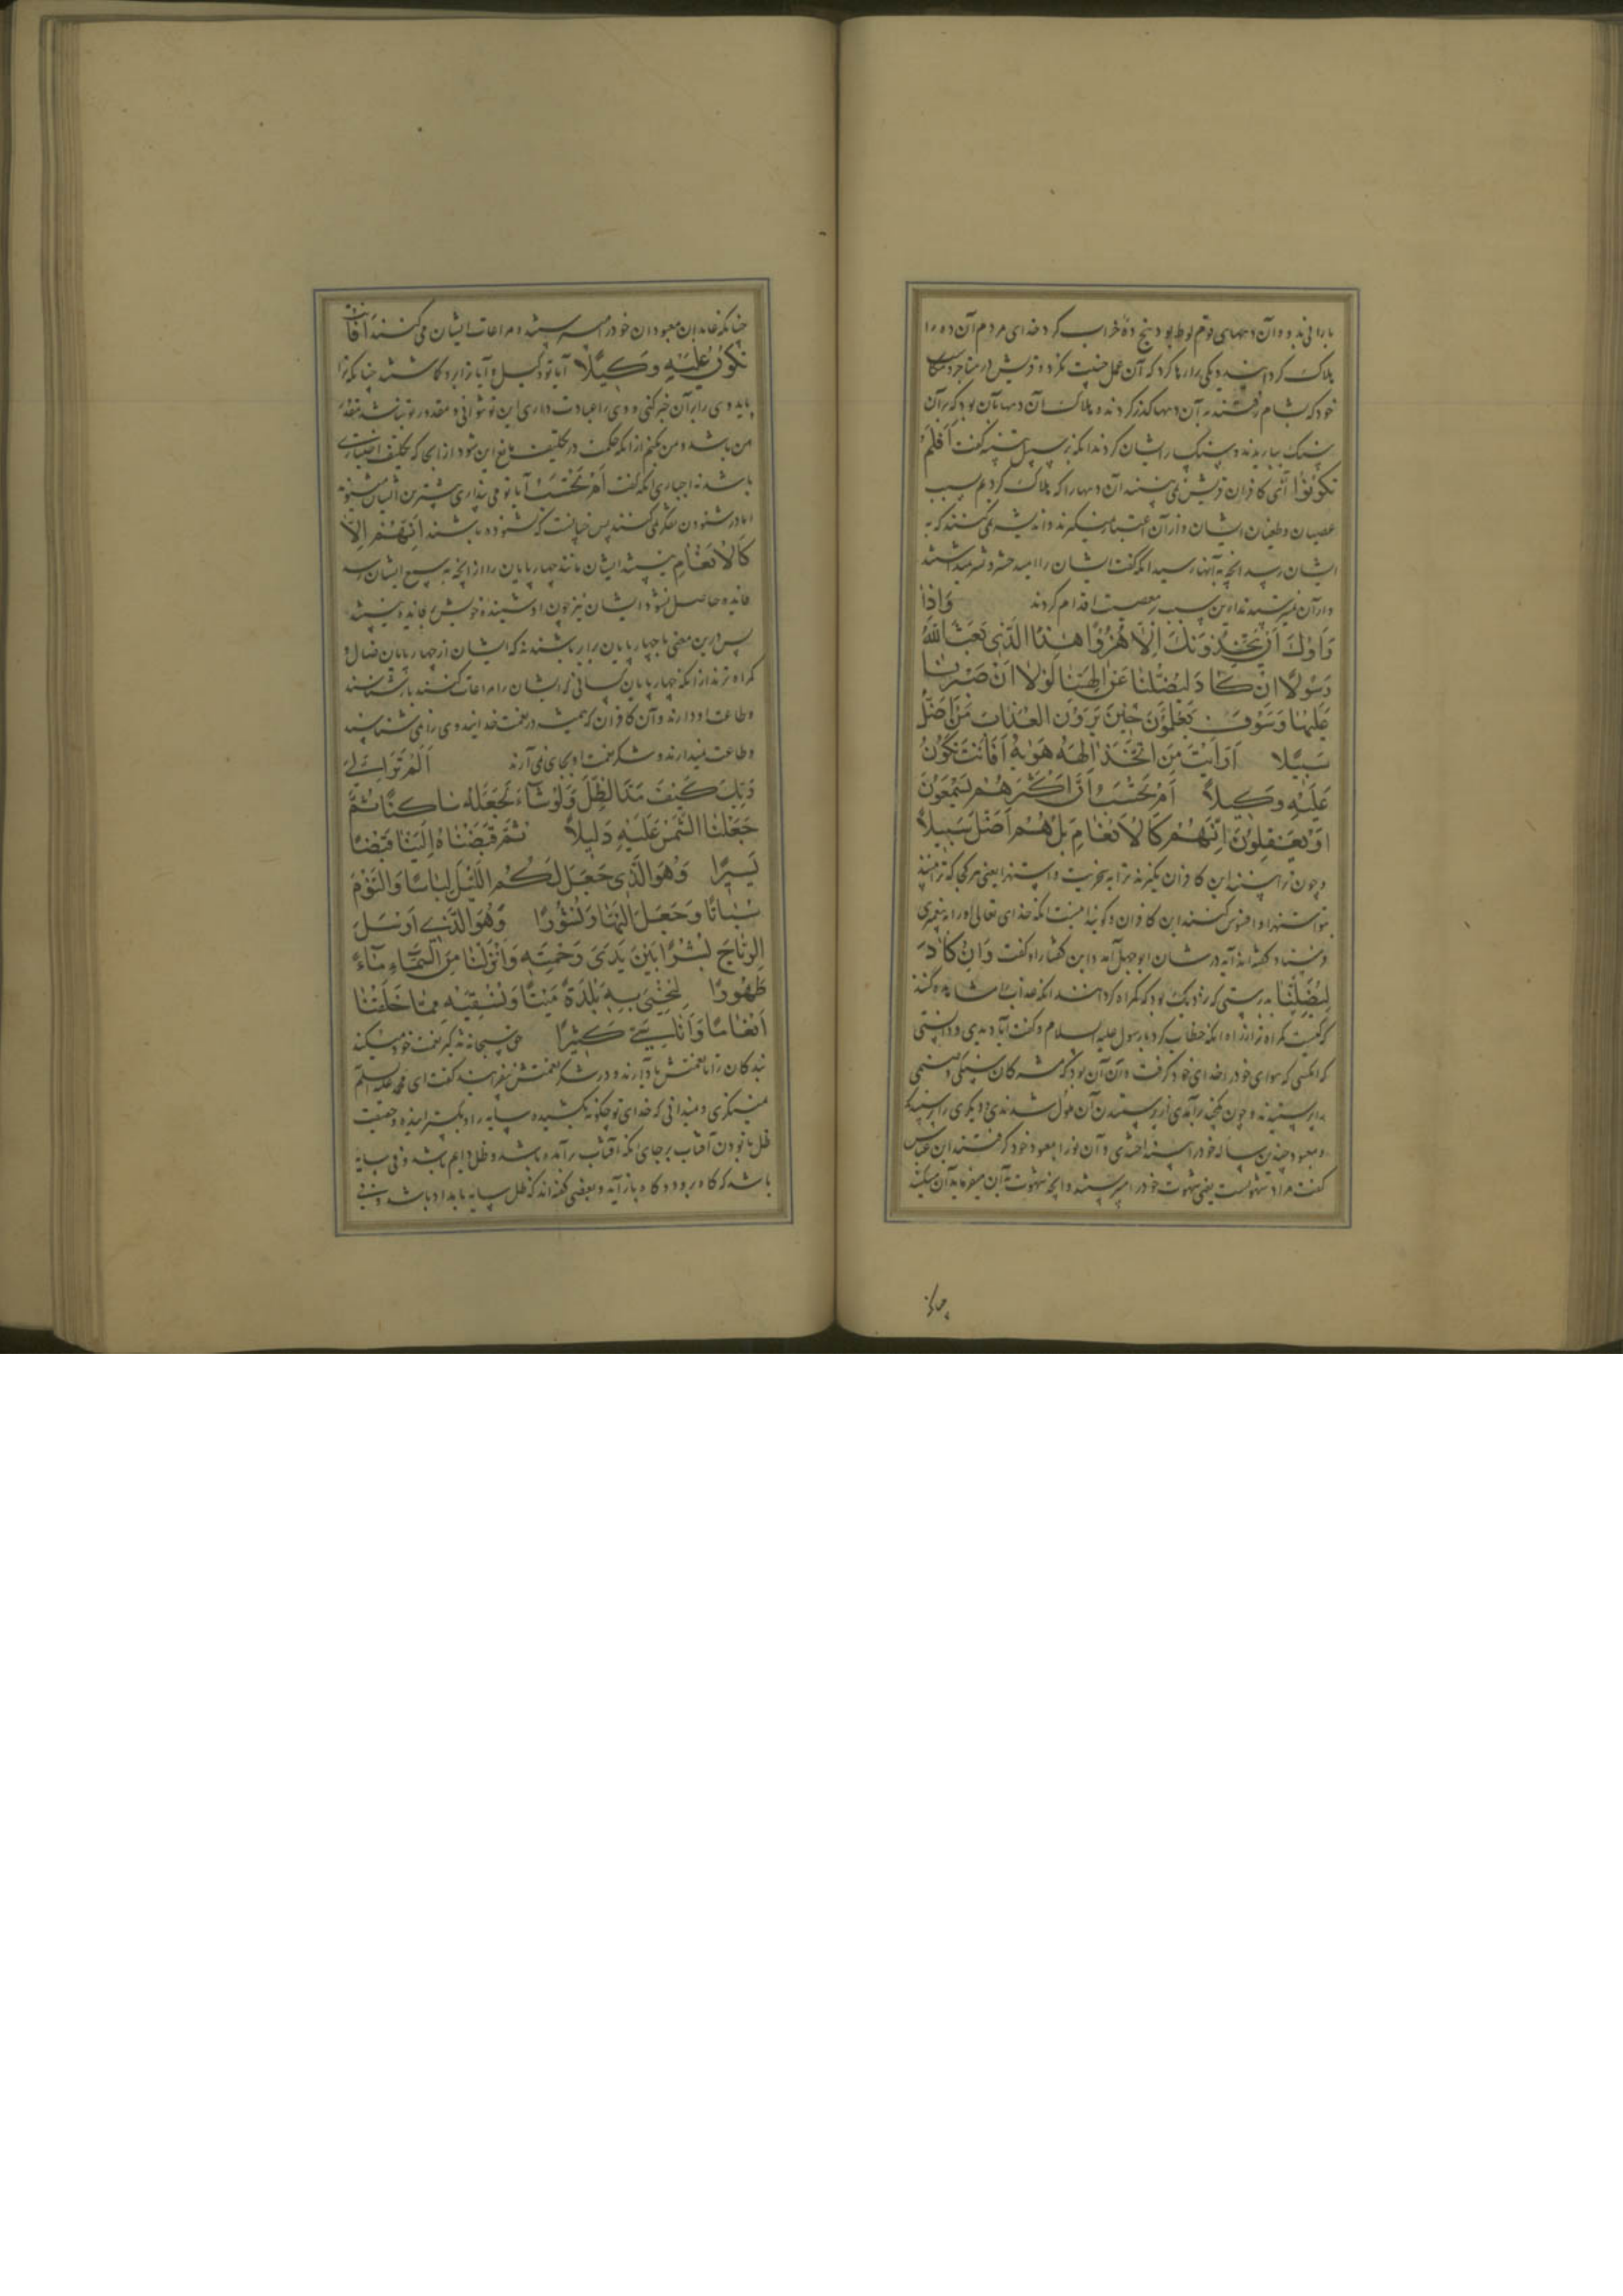 بارانی بد و آن دههای قوم لوط بود پنج ده خراب کرد خدای مردم آن ده را
هلاک کردانید و یکی را رها کرد که آن عمل خبیث نکرد و قریش در متاجر
خود که بشام رفتند بر آن دهها گذر کردند و هلاک آن دهها بآن بود که بر آن
سنگ ببارید گفت اَفَلَمْ
تَکُونُوا آیا کافران قریش نمی‌بینند آن دهها را که هلاک کردیم بسبب
عصیان و طغیان ایشان و از آن اعتبار نمیگیرند و اندیشه نمی‌کنند که به
ایشان رسد آنچه به آنها رسید آنکه گفت ایشان را امید حشر و نشر نمیداشتند
و از آن نترسیدند از این سبب بر معصیت اقدام کردند وَاِذَا
رَاَوْكَ اَنْ يَتَّخِذُونَكَ اِلَّا هُزُوًا اَهٰذَا الَّذِى بَعَثَ اللّٰهُ
رَسُولًا اِنْ كَادَ لَيُضِلُّنَا عَنْ اٰلِهَتِنَا لَوْلَا اَنْ صَبَرْنَا
عَلَيْهَا وَسَوْفَ يَعْلَمُونَ حِينَ يَرَوْنَ الْعَذَابَ مَنْ اَضَلُّ
سَبِيلًا اَرَاَيْتَ مَنِ اتَّخَذَ اِلٰهَهُ هَوٰيهُ اَفَاَنْتَ تَكُونُ
عَلَيْهِ وَكِيلًا اَمْ تَحْسَبُ اَنَّ اَكْثَرَهُمْ يَسْمَعُونَ
اَوْ يَعْقِلُونَ اِنْهُمْ كَالْاَنْعَامِ بَلْ هُمْ اَضَلُّ سَبِيلًا
و چون ترا بینند این کافران نگیرند ترا به سخریت و استهزا یعنی هر کجا که ترا بینند
بتو استهزا و افسوس کنند این کافران و گویند اینست آنکه خدای تعالی او را به پیغمبری
فرستاد گفته‌اند آیه در شان ابوجهل آمد و این گفتار او گفت وَاِنْ كَادَ
لَيُضِلُّنَا بدرستی که نزدیک بود که گمراه کرداند آنکه عذاب ما مشاهده کنند
که کیست گمراه‌تر از راه آنکه خطاب کرد با رسول علیه السلام و گفت آیا دیدی و دانستی
که آنکسی که هوای خود را خدای خود گرفت و آن آن بود که مشرکان سنگی و صنمی
را پرستیدند و چون از پرستیدن آن ملول شدندی دیگری را
و معبود چندین ساله خود را انداختندی و آن نو را معبود خود گرفتند ابن عباس
گفت مراد شهوتست یعنی شهوت خود را میپرستند و آنچه شهوت به آن میفرماید آن میکنند
چنانکه
چنانکه عابدان معبودان خود را میپرستند و مراعات ایشان می‌کنند اَفَاَنْتَ
تَكُونُ عَلَيْهِ وَكِيلًا آیا تو وکیل و آیا ترا بر او گماشتند چنانکه ترا
باید وی را بر آن خبر کنی و وی را عبادت داری این نتوانی و مقدور تو نباشد مقدور
من باشد و من نکنم از آنکه حکمت در تکلیف مانع این شود از آنجا که تکلیف اختیاری
باشد نه اجباری آنکه گفت اَمْ تَحْسَبُ آیا تو می‌پنداری بیشترین ایشان میشنوند
اما در شنودن تفکر نمی‌کنند پس چنانست که نشنوده باشند اِنْهُمْ اِلَّا
كَالْاَنْعَامِ نیستند ایشان مانند چهارپایان را از آنچه به سمع ایشان رسد
فایده حاصل نشود ایشان نیز چون از شنیده خویش بی فایده نیستند
پس در این معنی با چهارپایان برابر باشند نه که ایشان از چهارپایان ضال و
گمراه ترند از آنکه چهارپایان کسانی که ایشان را مراعات کنند باز شناسند
و طاعت او دارند و آن کافران که همیشه در نعمت خدا اند وی را نمی شناسند
و طاعت نمیدارند و شکر نعمت او بجای نمی آرند اَلَمْ تَرَ اِلٰى
رَبِّكَ كَيْفَ مَدَّ الظِّلَّ وَلَوْ شَاءَ لَجَعَلَهُ سَاكِنًا ثُمَّ
جَعَلْنَا الشَّمْسَ عَلَيْهِ دَلِيلًا ثُمَّ قَبَضْنَاهُ اِلَيْنَا قَبْضًا
يَسِيرًا وَهُوَ الَّذِى جَعَلَ لَكُمُ اللَّيْلَ لِبَاسًا وَالنَّوْمَ
سُبَاتًا وَجَعَلَ النَّهَارَ نُشُورًا وَهُوَ الَّذِى اَرْسَلَ
الرِّيَاحَ بُشْرًا بَيْنَ يَدَىْ رَحْمَتِهِ وَاَنْزَلْنَا مِنَ السَّمَاءِ مَاءً
طَهُورًا لِنُحْيِىَ بِهِ بَلْدَةً مَيْتًا وَنُسْقِيَهُ مِمَّا خَلَقْنَا
اَنْعَامًا وَاَنَاسِىَّ كَثِيرًا حق سبحانه تذکیر نعمت خود میکند
بندگان را تا نعمتش یاد آرند و در شکر نعمتش بیفزایند گفت ای محمد علیه السلم
مینگری و میدانی که خدای تو چگونه بکشیده سایه را و بگسترانیده و حقیقت
ظل نابودن آفتاب بر جای آنکه آفتاب بر آمده باشد و ظل دایم باشد و فی سایه
باشد که گاه برود و گاه باز آید و بعضی گفته‌اند که ظل سایه بامداد باشد و فی